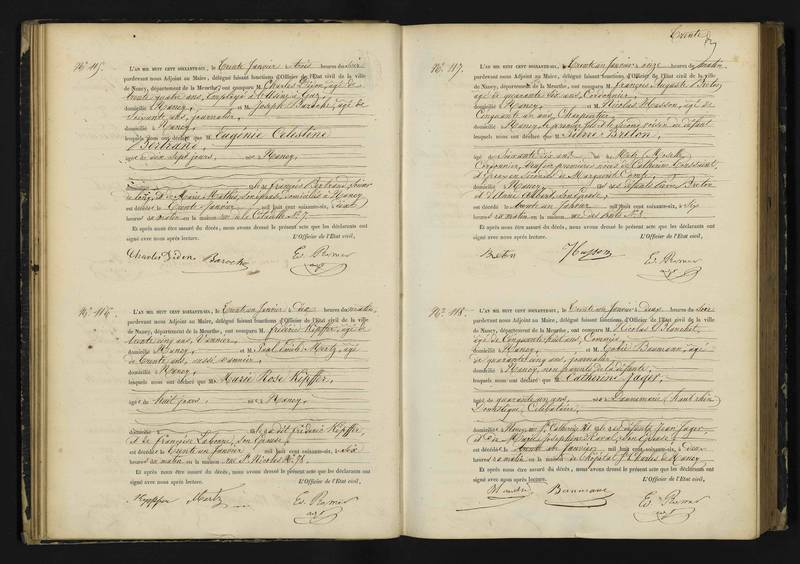 Trente
N.º 115.
L'AN MIL HUIT CENT SOIXANTE-SIX, le trente Janvier à trois heures du soir
pardevant nous Adjoint au Maire, délégué faisant fonctions d'Officier de l'Etat civil de la ville
de Nancy, département de la Meurthe, ont comparu M. Charles Didon, âgé de
trente quatre ans, Employé à l'Usine à Gaz
domicilié à Nancy, et M. Joseph Baroche, âgé de
soixante ans, journalier,
domicilié à Nancy,
lesquels nous ont déclaré que Eugénie Célestine
Bertrand,
âgée de dix sept jours, née à Nancy,
fille de François Bertrand,
et de Marie Mathis, son épouse, domiciliés à Nancy
est décédée le trente Janvier mil huit cent soixante-six, à
heures du matin en la maison rue de la Citadelle N.º 7.
Et après nous être assuré du décès, nous avons dressé le présent acte que les déclarants ont
signé avec nous après lecture. L'Officier de l'Etat civil,
Charles Didon Baroche
N.º 116.
L'AN MIL HUIT CENT SOIXANTE-SIX, le trente un Janvier à dix heures du matin,
pardevant nous Adjoint au Maire, délégué faisant fonctions d'Officier de l'Etat civil de la ville
de Nancy, département de la Meurthe, ont comparu M. Frédéric Köpffer, âgé de
trente cinq ans, Vannier,
domicilié à Nancy, et M. Paul Emile Mertz, âgé
de trente ans, aussi vannier,
domicilié à Nancy,
lesquels nous ont déclaré que Marie Rose Köpffer,
âgée de huit jours, née à Nancy,
fille du dit Frédéric Köpffer
et de Françoise son épouse,
est décédée le trente un Janvier mil huit cent soixante-six, à six
heures du matin en la maison rue St. Nicolas N.º 78.
Et après nous être assuré du décès, nous avons dressé le présent acte que les déclarants ont
signé avec nous après lecture. L'Officier de l'Etat civil,
Köpffer Mertz
N.º 117.
L'AN MIL HUIT CENT SOIXANTE-SIX, le trente un Janvier à onze heures du matin,
pardevant nous Adjoint au Maire, délégué faisant fonctions d'Officier de l'Etat civil de la ville
de Nancy, département de la Meurthe, ont comparu M. François Auguste Breton,
âgé de quarante six ans, Cordonnier,
domicilié à Nancy, et M. Nicolas Husson, âgé de
Cinquante un ans, Charpentier,
domicilié à Nancy, le premier fils et le second voisin du défunt
lesquels nous ont déclaré que M. Pierre Breton,
âgé de Soixante dix ans né à Metz, Moselle
Cordonnier, veuf en premières noces de Catherine
et époux en secondes de Marguerite
domicilié à Nancy, fils des défunts Breton
et Albert, son épouse,
est décédé le trente un Janvier mil huit cent soixante-six, à six
heures du matin en la maison rue N.º 3.
Et après nous être assuré du décès, nous avons dressé le présent acte que les déclarants ont
signé avec nous après lecture. L'Officier de l'Etat civil,
Breton Husson
N.º 118.
L'AN MIL HUIT CENT SOIXANTE-SIX, le trente un Janvier à deux heures du soir
pardevant nous Adjoint au Maire, délégué faisant fonctions d'Officier de l'Etat civil de la ville
de Nancy, département de la Meurthe, ont comparu M. Nicolas Blanchet,
âgé de Cinquante huit ans, Commis,
domicilié à Nancy, et M. Gabriel Baumann, âgé
de quarante cinq ans, journalier,
domicilié à Nancy, non parents de la défunte,
lesquels nous ont déclaré que Catherine Jager,
âgée de quarante un ans, née à Dannemarie, haut rhin
Domestique, Célibataire,
domiciliée à Nancy, rue Ste. Catherine fille des défunts Jean Jager,
et de Marie Joséphine son épouse,
est décédée le trente un Janvier mil huit cent soixante-six, à deux
heures du matin en la maison de l'hôpital St. Charles de Nancy
Et après nous être assuré du décès, nous avons dressé le présent acte que les déclarants ont
signé avec nous après lecture. L'Officier de l'Etat civil,
Blanchet Baumann